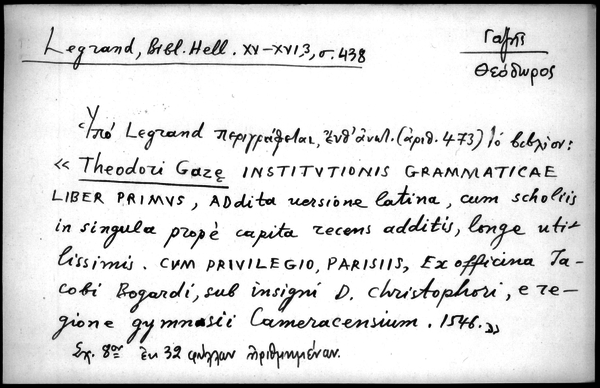 Legrand, Bibl. Hell. XV-XVI,3, σ. 438
Γαζῆς
Θεόδωρος
Ὑπό Legrand περιγράφεται, ἔνθ' ἀνωτ. (ἀριθ. 473) τό βιβλίον:
« Theodori Gazę INSTITVTIONIS GRAMMATICAE
LIBER PRIMVS, ADdita versione latina, cum scholiis
in singula propè capita recens additis, longe uti-
lissimis. CVM PRIVILEGIO, PARISIIS, Ex officina Ja-
cobi Bogardi, sub insigni D. Christophori, e re-
gione gymnasii Cameracensium. 1546.»
Σχ. 8ον ἐκ 32 φύλλων ἀριθμημένων.